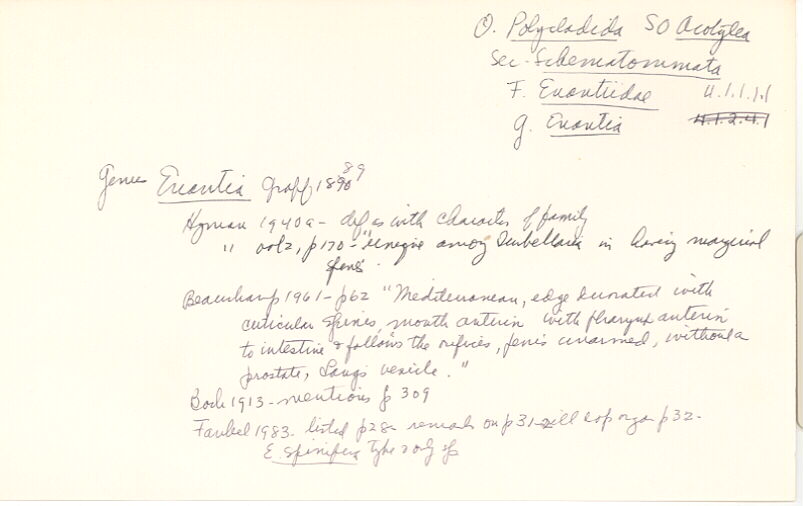 O. Polycladida SO Acotylea
Sec. Schematommata
F. Enantiidae 4.1.1.1.1
g. Enantia 4.1.2.4.1
Genus Enantia Graff 1890 89
Hyman 1940a - def as with characters of family
" vol 2, p170 - "unique among Turbellaria in having marginal
spines.
Beauchamp 1961 - p62 "Mediterranean, edge serrated with
cuticular spines, mouth anterior with pharynx anterior
to intestine & follows the orifices, penis unarmed, without a
prostate, Lang's vesicle."
Bock 1913 - mentions p 309
Faubel 1983 - listed p28 - remark on p31 - ill cop organ p32 -
E. spinifera type & only sp